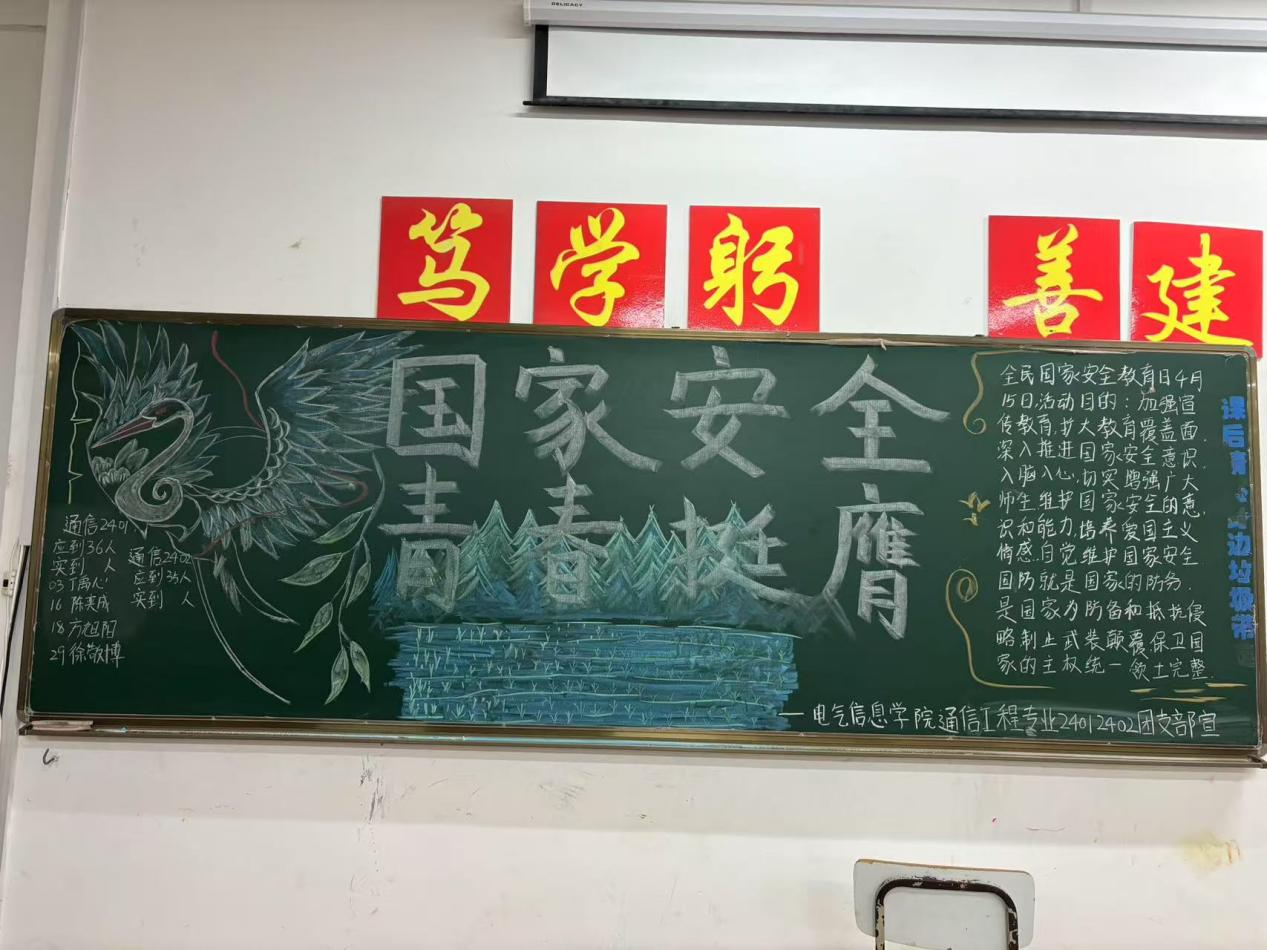 DELICACY
笃学躬 善建
国家安全
青春挺膺
通信2401
应到36人
实到 人
03丁禹心
16 陈奕成
18方旭阳
29徐敬博
通信2402
应到35人
实到 人
全民国家安全教育日4月
15日,活动目的:加强宣
传教育,扩大教育覆盖面.
深入推进国家安全意识.
入脑入心,切实增强广大
师生维护国家安全的意
识和能力,培养爱国主义
情感.自觉维护国家安全
国防就是国家的防务.
是国家为防备和抵抗侵
略,制止武装颠覆,保卫国
家的主权统一领土完整.
课后请 边垃圾带
—电气信息学院通信工程专业2401 2402团支部宣